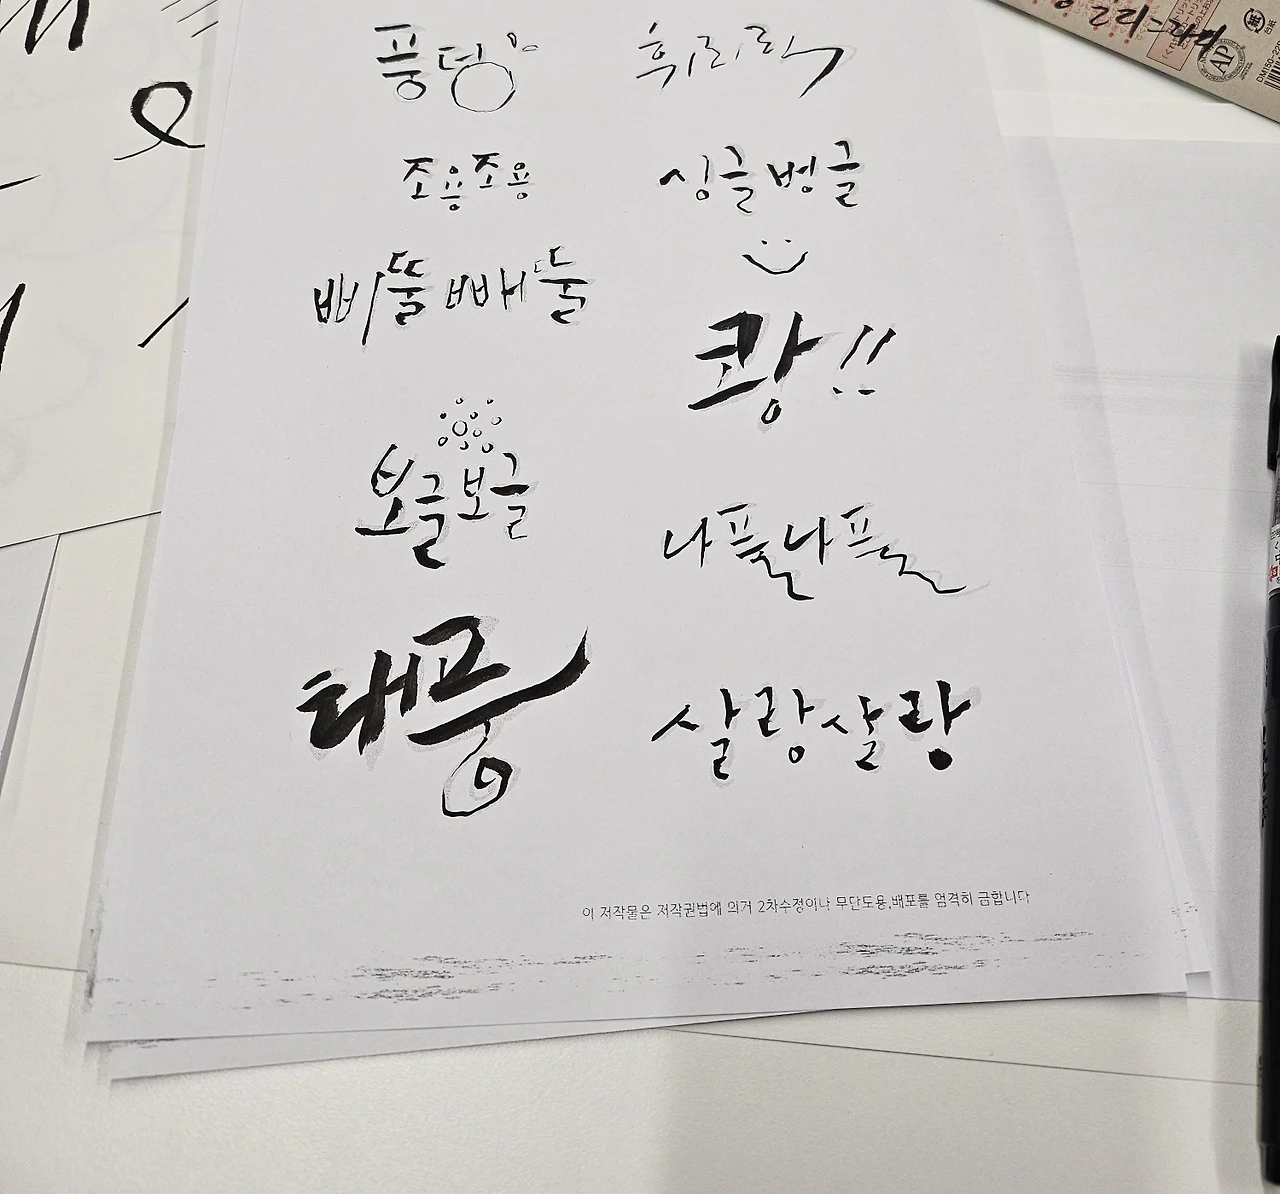 풍덩 휘리릭
조용조용 싱글벙글
삐뚤빼뚤
쾅!!
보글보글
나풀나풀
태풍 살랑살랑
이 저작물은 저작권법에 의거 2차수정이나 무단도용,배포를 엄격히 금합니다
AP